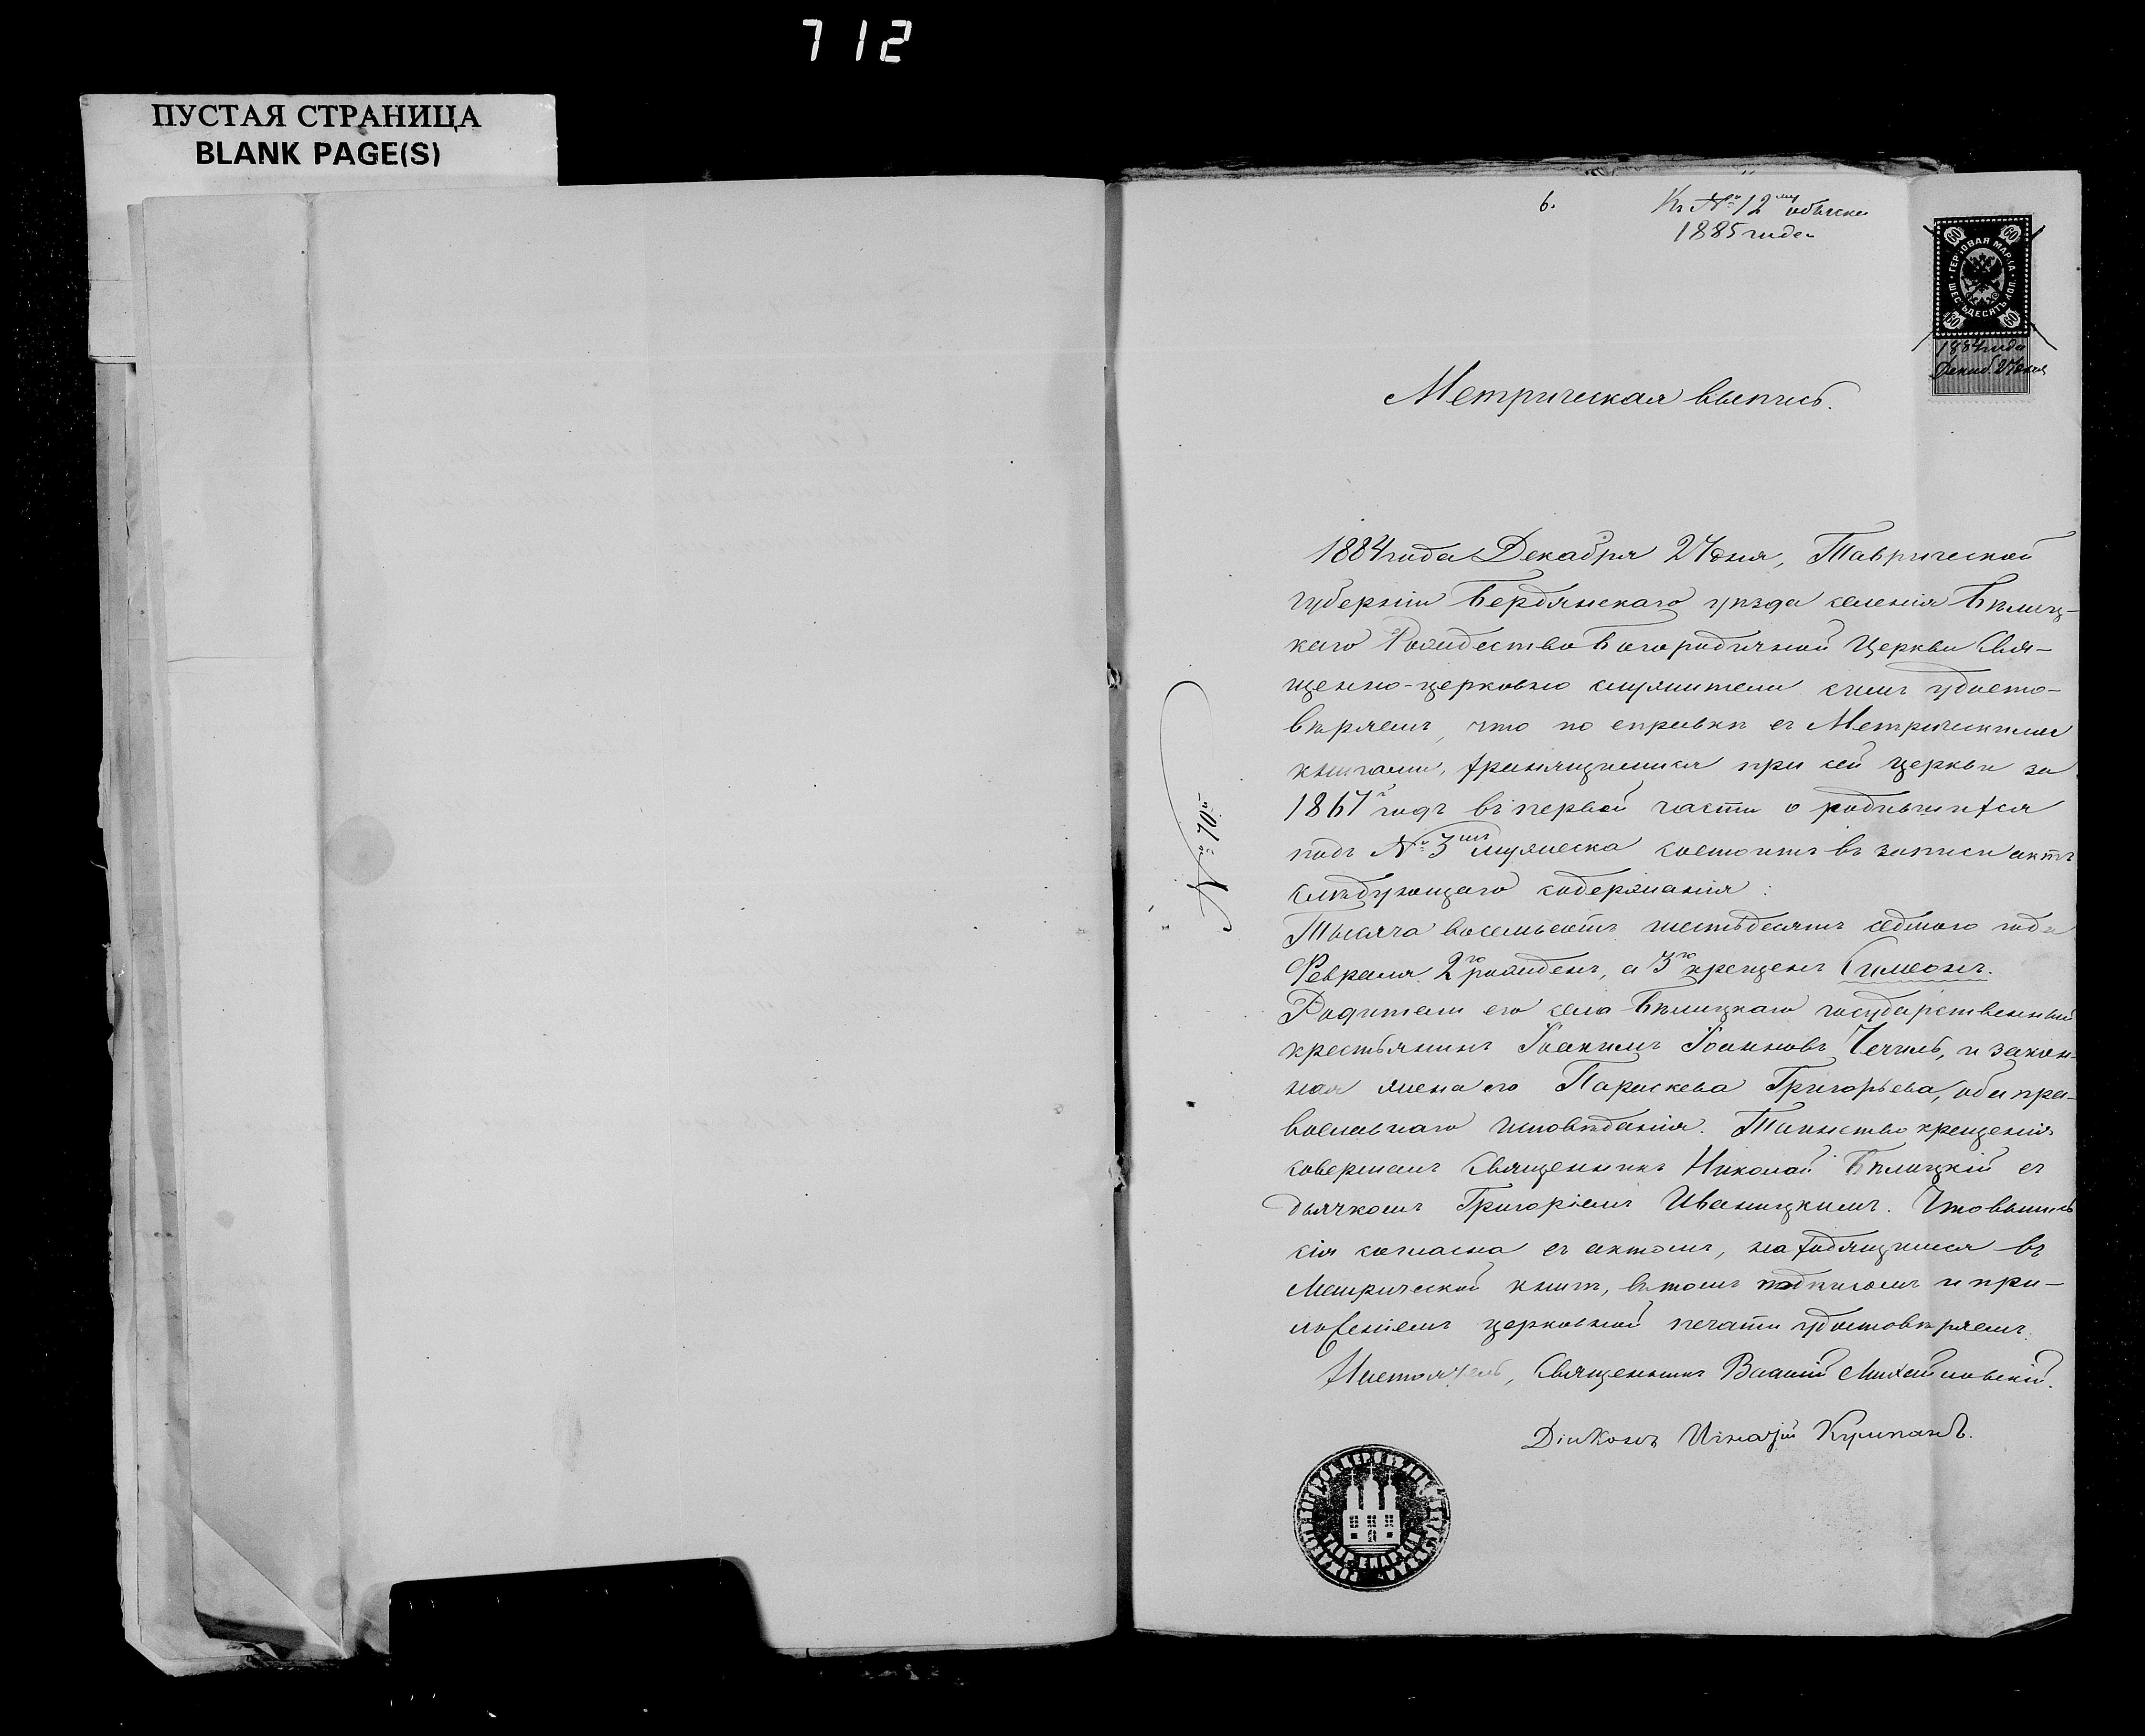 712
ПУСТАЯ СТРАНИЦА
BLANK PAGE(S)
6.
Къ №12му обыску
1885 года
ГЕРБОВАЯ МАРКА
ШЕСТЬДЕСЯТЪ КОП.
60 60
60 60
1884 года
Декаб. 27 дня
Метрическая выпись.
№ 70й
1884 года Декабря 27 дня, Таврической
губерніи Бердянскаго уѣзда селенія Бѣлиц-
каго Рождество Богородичной Церкви Свя-
щенно-церковно служители симъ удосто-
вѣряемъ, что по справкѣ съ Метрическими
книгами, хранящимися при сей церкви за
1867й годъ въ первой части о родившихся
подъ № 3мъ мужеска состоитъ въ записи актъ
слѣдующаго содержанія:
Тысяча восемьсотъ шестьдесятъ седмого года
Февраля 2го рожденъ, а 3го крещенъ Симеонъ.
Родители его села Бѣлицкаго государственный
крестьянинъ Іоакимъ Іоанновъ Чечиль, и закон-
ная жена его Параскева Григорьева, оба пра-
вославнаго исповѣданія. Таинство крещенія
совершалъ Священникъ Николай Бѣлицкій съ
дьячкомъ Григоріемъ Иваницкимъ. Что выпись
сія согласна съ актомъ, находящимся въ
Метрической книгѣ, въ томъ подписомъ и при-
ложеніемъ церковной печати удостовѣряемъ.
Настоятель, Священникъ Василій Михайловскій.
Діаконъ Игнатій